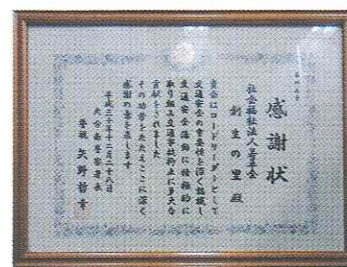 感謝状
社会福祉法人若草会
創生の里 殿
貴会はロードリーダーとして
交通安全の重要性を深く認識し
交通安全活動に積極的に
取り組み交通事故抑止に多大な
貢献をされました
その功労をたたえここに深く
感謝の意を表します
平成三十年十二月二十八日
大分南警察署長
警視 矢野哲幸